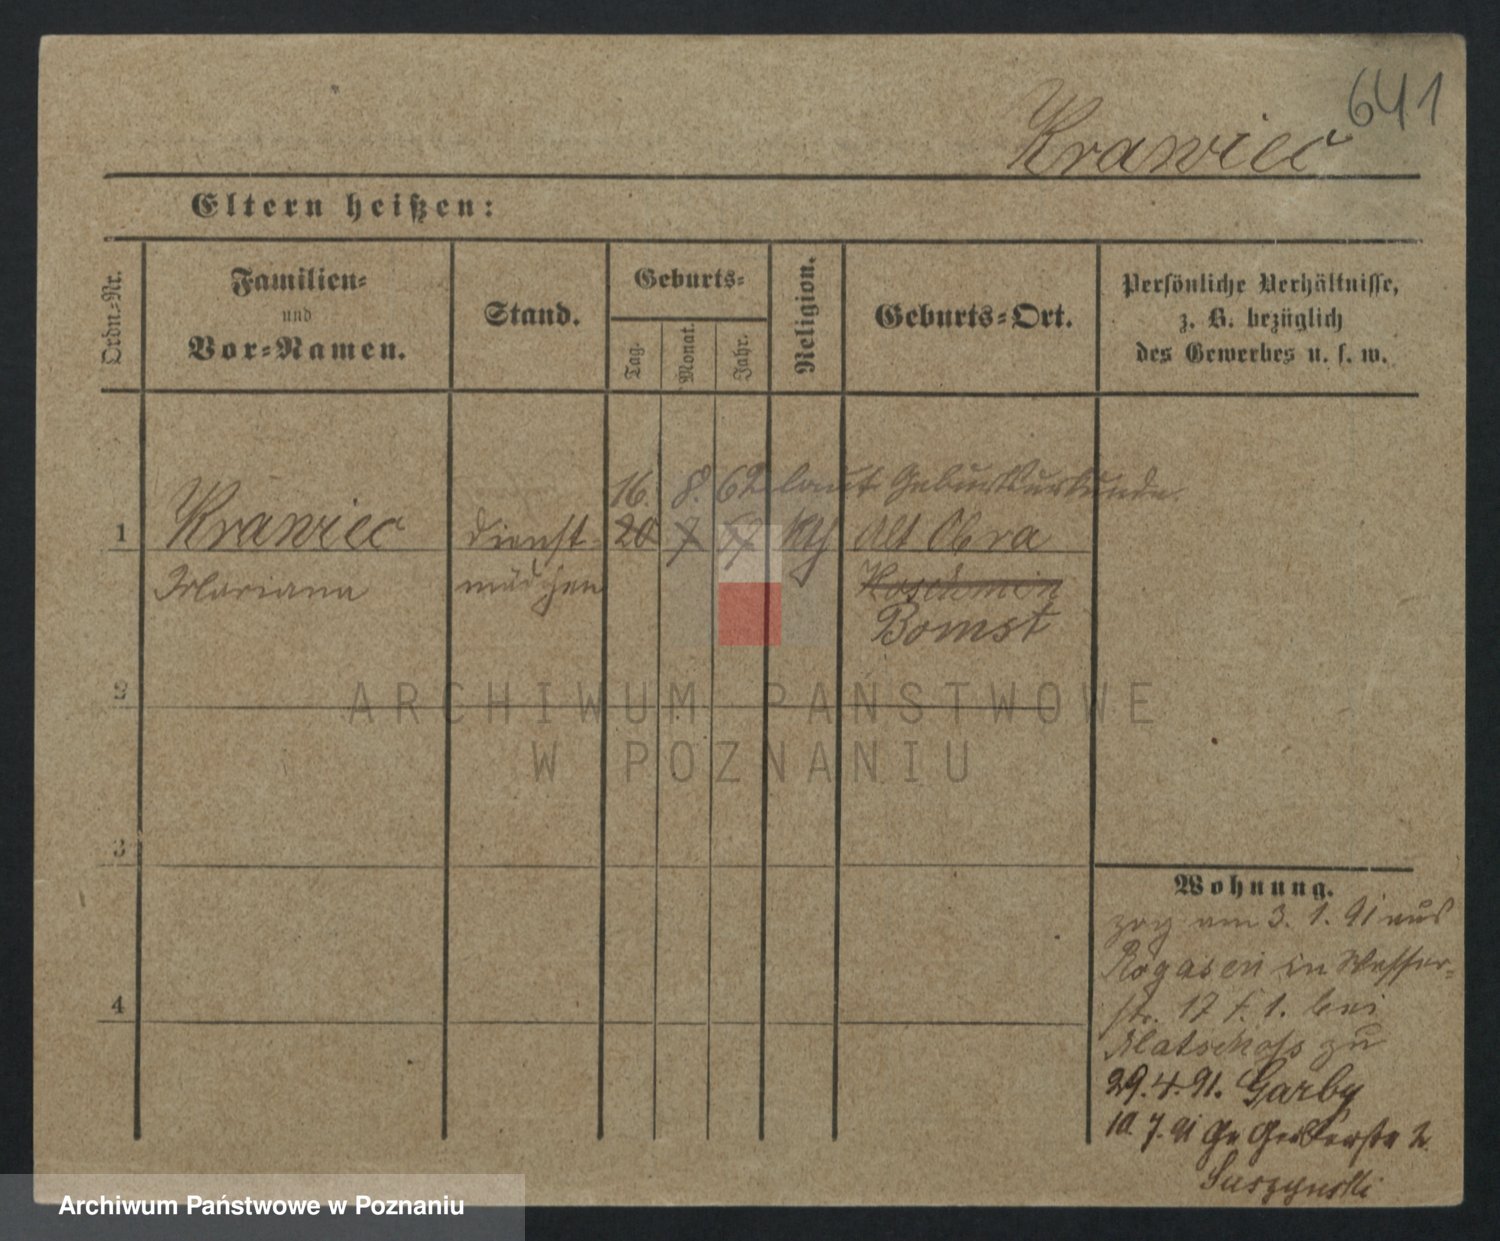 641
Krawiec
Eltern heißen:
Ordn.-Nr.
Familien-
und
Vor-Namen.
Stand.
Geburts-
Tag.
Monat.
Jahr.
Religion.
Geburts-Ort.
Persönliche Verhältnisse,
z. B. bezüglich
des Gewerbes u. s. w.
16. 8. 62 laut Geburtsurkunde.
1 Krawiec Dienst- 20 7 kth Alt Obra
Mariana mädchen Koschmin
Bomst
2
ARCHIWUM PAŃSTWOWE
W POZNANIU
3
Wohnung.
zog am 3. 1. 91 aus
Rogasen in Wasser-
str. 17 I. bei
Matschoss zu
4
29.4.91. Garby
10. 7. 91 Gr Gerberstr 2
Suszynski
Archiwum Państwowe w Poznaniu